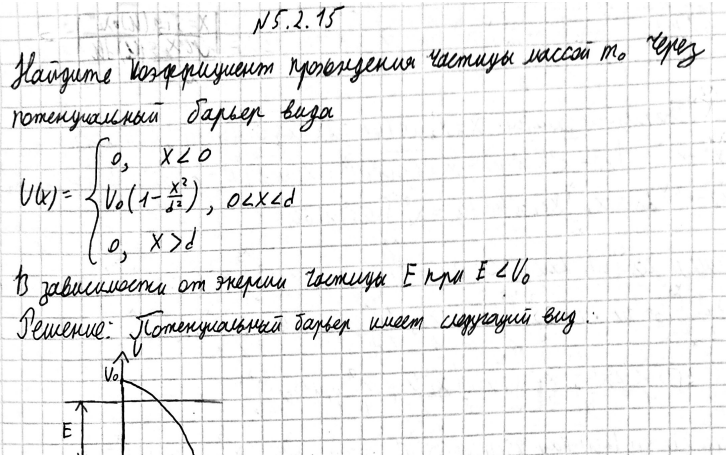 №5.2.15
Найдите коэффициент прохождения частицы массой m₀ через
потенциальный барьер вида
U(x) = { 0, x < 0
V₀(1 - x²/d²), 0 < x < d
0, x > d
В зависимости от энергии частицы E при E < V₀
Решение: Потенциальный барьер имеет следующий вид:
U
V₀
E